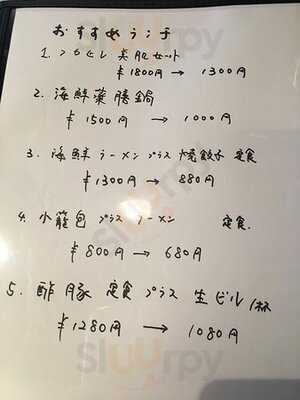 おすすめランチ
1. フカヒレ 美肌セット
¥1800円 → 1300円
2. 海鮮薬膳鍋
¥1500円 → 1000円
3. 海鮮ラーメン プラス 焼餃子 定食
¥1300円 → 880円
4. 小籠包 プラス ラーメン 定食.
¥800円 → 680円
5. 酢豚 定食 プラス 生ビル 1杯
¥1280円 → 1080円
Sluurpy